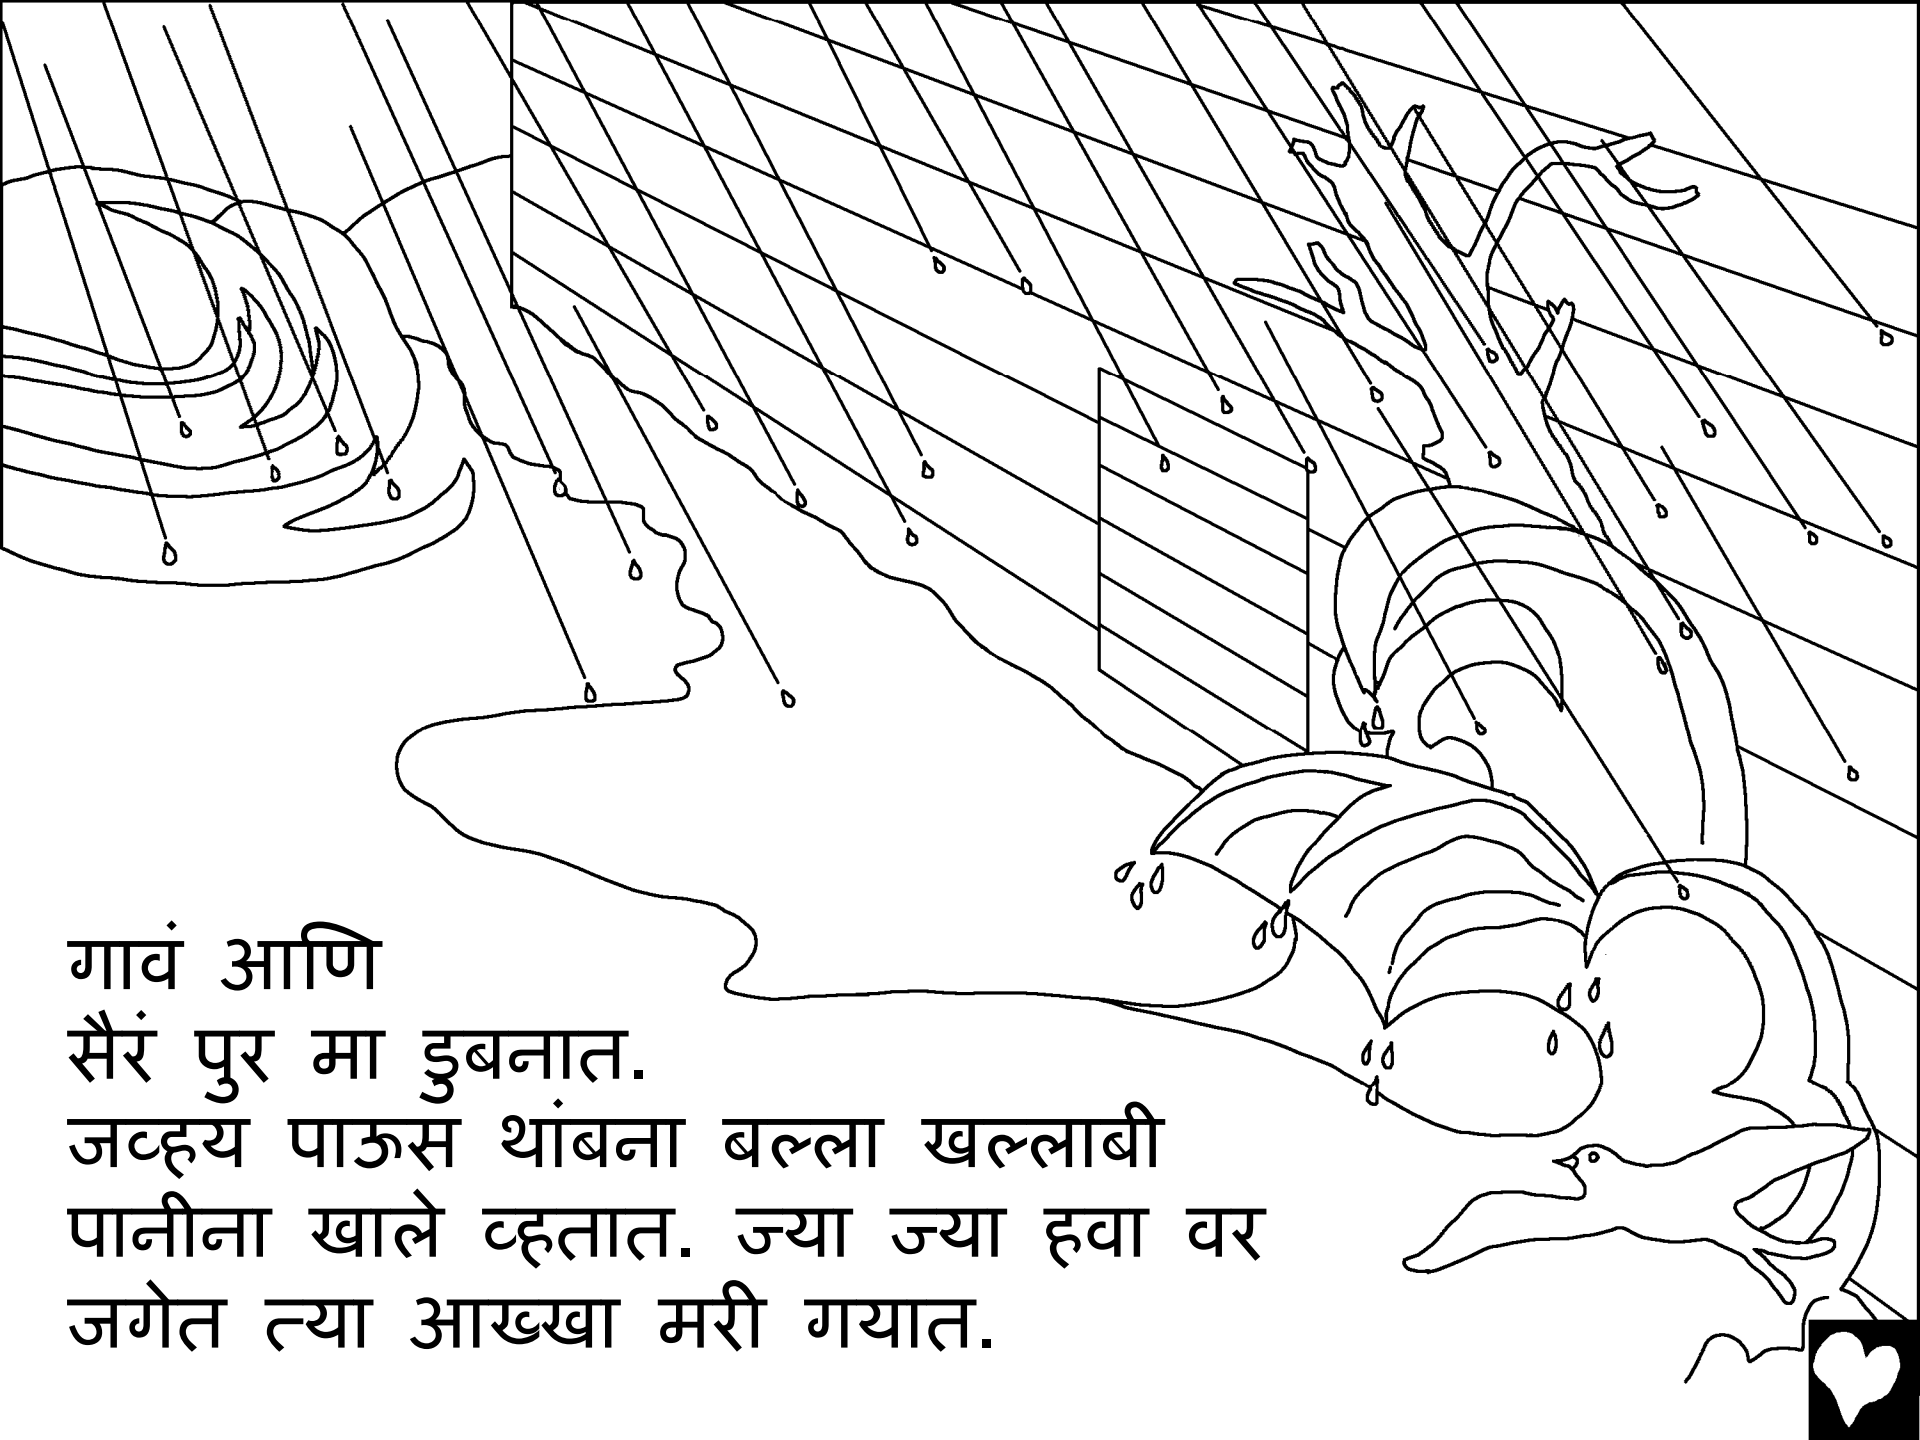 गावं आणि
सैरं पुर मा डुबनात.
जव्हय पाऊस थांबना बल्ला खल्लाबी
पानीना खाले व्हतात. ज्या ज्या हवा वर
जगेत त्या आख्खा मरी गयात.